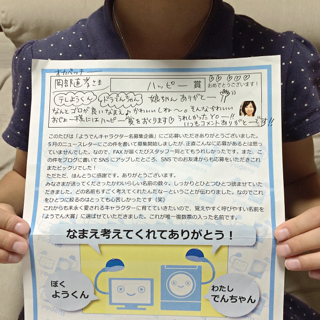 オカベナオミ
岡部直美さま
ハッピー賞
おめでとうございます!
テレようくん でんちゃん 娘ちゃん ありがとー
なんとゴロが良いなまえ かわいい
ハッピー賞をおくります
いつもコメントありがとーです!!
このたびは「ようでんキャラクター名募集企画」にご応募いただきありがとうございました。
9月のニュースレターにこの件を書いて募集開始しましたが、正直こんなに応募があるとは思っていませんでした。なので、FAXが届くたびスタッフ一同とてもうれしかったです。また、この件をブログに書いてSNSにアップしたところ、SNSでのお友達からも応募をいただきこれまたビックリでした!
ただただ、ほんとうに感謝であります。
みなさまが送ってくださったかわいらしい名前の数々。しっかりとひとつひとつ読ませていただきました。どの名前もすごく考えてくれたんだなーということが伝わりました。なのでこれをひとつに絞るのはとっても心苦しかったです(笑)
これからも末永く愛されるキャラクターに育てていきたいので、覚えやすく呼びやすい名前を「ようでん大賞」に選ばせていただきました。これが唯一複数票の入った名前です。
なまえ考えてくれてありがとう!
ぼく
ようくん
わたし
でんちゃん